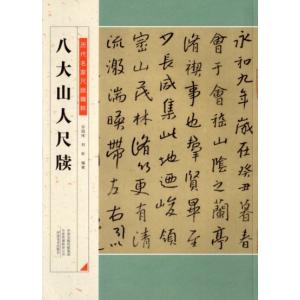 八大山人尺牍
永和九年歲在癸丑暮春
會于會稽山陰之蘭亭
脩禊事也羣賢畢至
少長咸集此地迺峻領
崇山茂林脩竹更有清
流激湍暎帶左右引